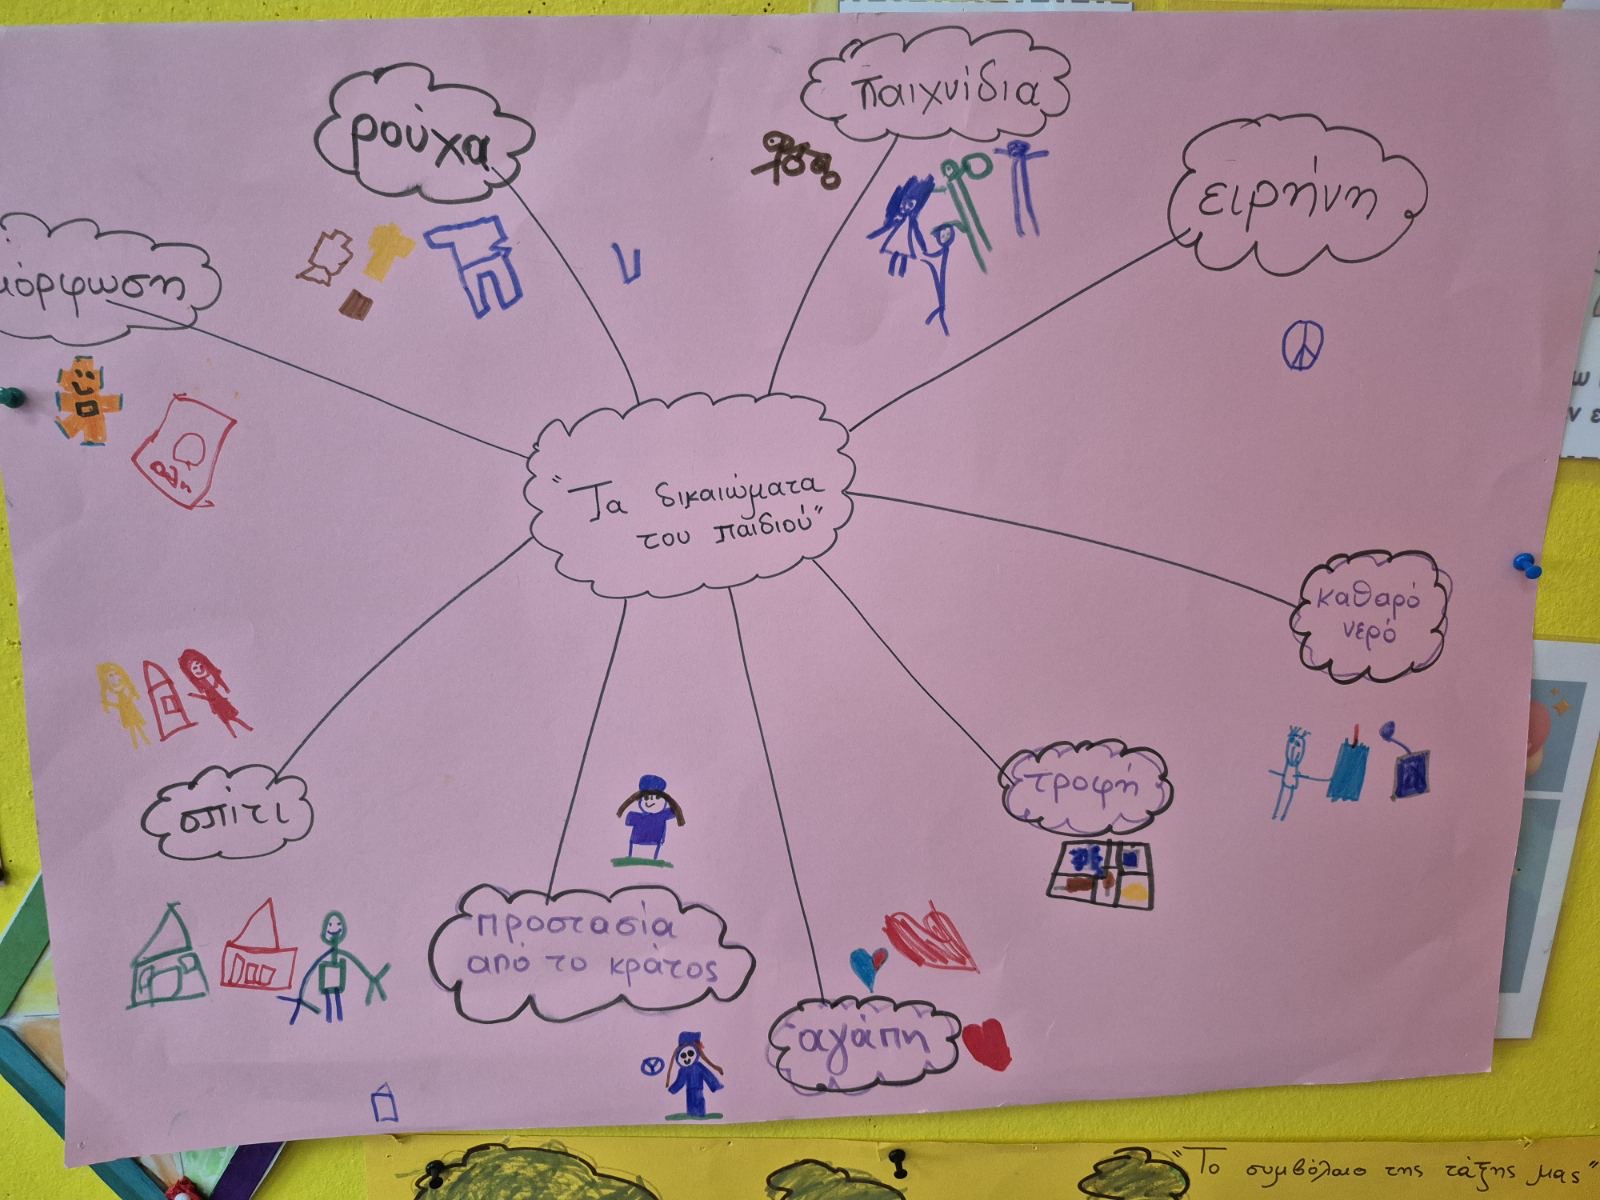 παιχνίδια
ρούχα
ειρήνη
μόρφωση
"Τα δικαιώματα
του παιδιού"
καθαρό
νερό
τροφή
σπίτι
προστασία
από το κράτος
αγάπη
"Το συμβόλαιο της τάξης μας"